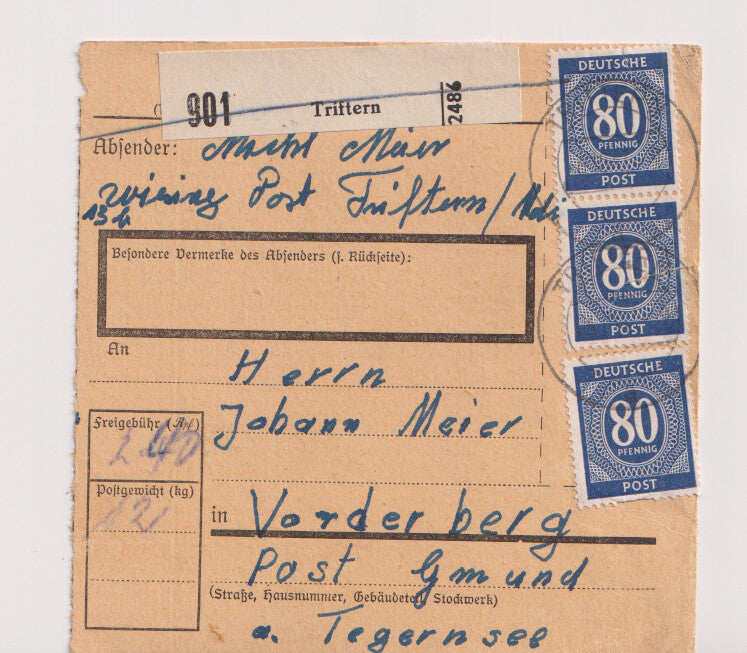 901 Triftern 2486
Absender: Meier
Post Triftern /
13b
Besondere Vermerke des Absenders (s. Rückseite):
An
Herrn
Johann Meier
Freigebühr (Rℳ)
2 40
Postgewicht (kg)
12
in Vorderberg
Post Gmund
(Straße, Hausnummer, Gebäudeteil, Stockwerk)
a. Tegernsee
DEUTSCHE
80
PFENNIG
POST
DEUTSCHE
80
PFENNIG
POST
DEUTSCHE
80
PFENNIG
POST